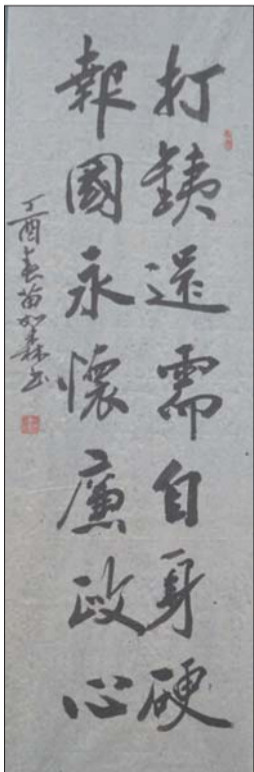 打銕还需自身硬
報國永懷廉政心
丁酉春苗如森书